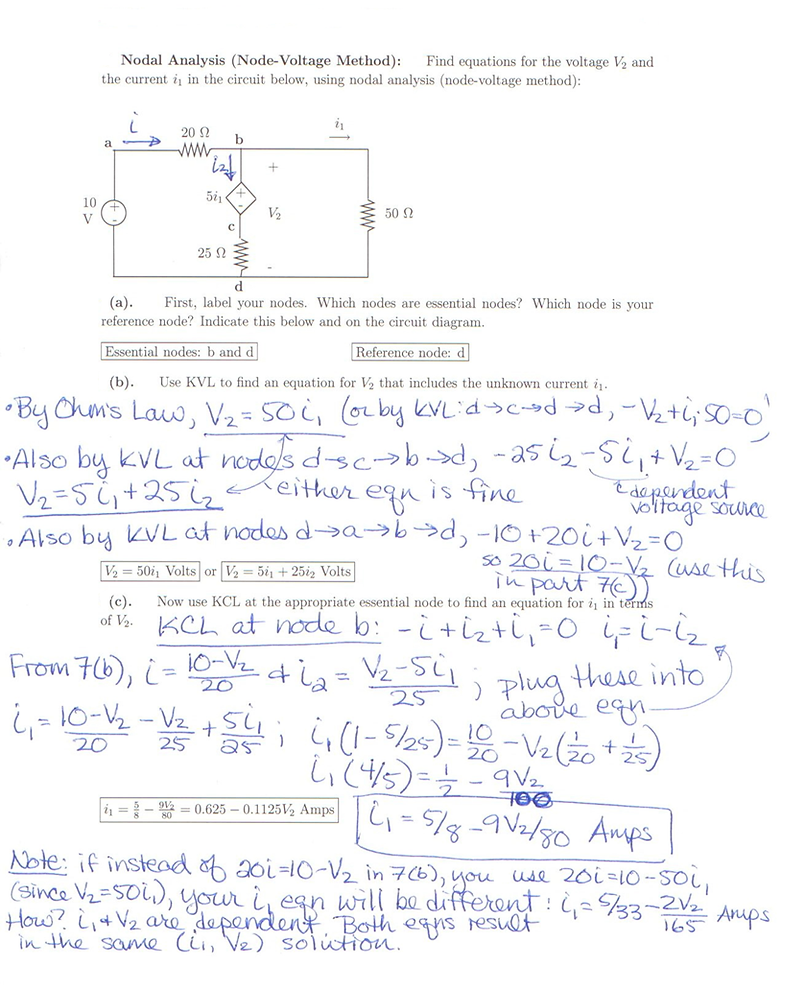 Nodal Analysis (Node-Voltage Method): Find equations for the voltage V₂ and
the current i₁ in the circuit below, using nodal analysis (node-voltage method):
i
i₁
20 Ω
a
b
i₂
+
5i₁
+
-
10
V
+
-
V₂
50 Ω
c
25 Ω
-
d
(a). First, label your nodes. Which nodes are essential nodes? Which node is your
reference node? Indicate this below and on the circuit diagram.
Essential nodes: b and d Reference node: d
(b). Use KVL to find an equation for V₂ that includes the unknown current i₁.
• By Ohm's Law, V₂ = 50i₁ (or by KVL: d→c→d→d, -V₂+i₁·50=0)
• Also by KVL at nodes d→c→b→d, -25i₂-5i₁+V₂=0
V₂=5i₁+25i₂ ← either eqn is fine
dependent
voltage source
• Also by KVL at nodes d→a→b→d, -10+20i+V₂=0
so 20i=10-V₂ (use this
in part 7(c))
V₂ = 50i₁ Volts or V₂ = 5i₁ + 25i₂ Volts
(c). Now use KCL at the appropriate essential node to find an equation for i₁ in terms
of V₂. KCL at node b: -i+i₂+i₁=0 i₁=i-i₂
From 7(b), i = (10-V₂)/20 & i₂ = (V₂-5i₁)/25 ; plug these into
above eqn
i₁ = (10-V₂)/20 - V₂/25 + 5i₁/25 ; i₁(1-5/25) = 10/20 - V₂(1/20 + 1/25)
i₁(4/5) = 1/2 - 9V₂/100
i₁ = 5/8 − 9V₂/80 = 0.625 − 0.1125V₂ Amps
i₁ = 5/8 - 9V₂/80 Amps
Note: if instead of 20i=10-V₂ in 7(b), you use 20i=10-50i₁
(since V₂=50i₁), your i₁ eqn will be different: i₁ = 5/33 - 2V₂/165 Amps
How? i₁ & V₂ are dependent. Both eqns result
in the same (i₁, V₂) solution.